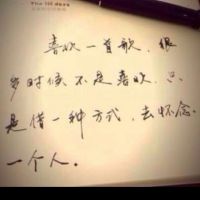 The 100 days
喜欢一首歌，很
多时候不是喜欢，只
是借一种方式，去怀念
一个人。